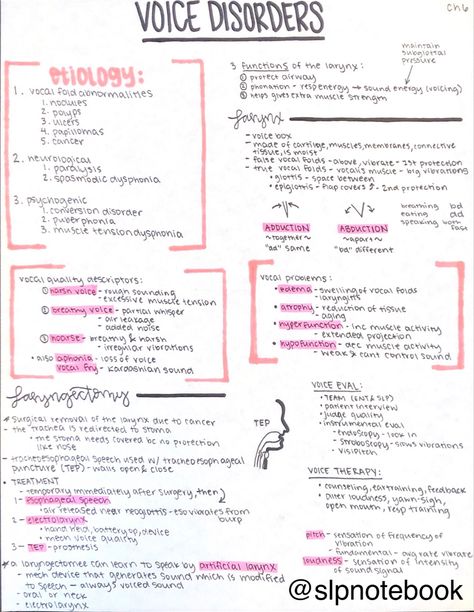 VOICE DISORDERS
Ch 6
etiology:
1. vocal fold abnormalities
1. nodules
2. polyps
3. ulcers
4. papillomas
5. cancer
2. neurological
1. paralysis
2. spasmodic dysphonia
3. psychogenic
1. conversion disorder
2. puberphonia
3. muscle tension dysphonia
maintain
subglottal
pressure
3 functions of the larynx:
① protect airway
② phonation - resp energy → sound energy (voicing)
③ helps gives extra muscle strength
larynx
- voice box
- made of cartilage, muscles, membranes, connective
tissue, is moist
- false vocal folds - above, vibrate - 1st protection
- true vocal folds - vocalis muscle - big vibrations
• glottis - space between
• epiglottis - flap covers & 2nd protection
ADDUCTION
~together~
"ad" same
ABDUCTION
~apart~
"bd" different
breathing bd
eating ad
speaking both
fast
vocal quality descriptors:
① harsh voice - rough sounding
- excessive muscle tension
② breathy voice - partial whisper
- air leakage
- added noise
③ hoarse - breathy & harsh
- irregular vibrations
• also aphonia - loss of voice
vocal fry - kardashian sound
vocal problems:
• edema - swelling of vocal folds
- laryngitis
• atrophy - reduction of tissue
- aging
• hyperfunction - inc muscle activity
- extended projection
• hypofunction - dec muscle activity
- weak & cant control sound
laryngectomy
* surgical removal of the larynx due to cancer
- the trachea is redirected to stoma
• the stoma needs covered bc no protection
like nose
- tracheoesophageal speech used w/ tracheoesophageal
puncture (TEP) - walls open & close
• TREATMENT
- temporary immediately after surgery, then
1- esophageal speech
• air released near neoglottis - eso vibrates from
burp
2- electrolarynx
• hand held, battery op, device
• mech voice quality
3- TEP - prosthesis
* a laryngectomee can learn to speak by artificial larynx
- mech device that generates sound which is modified
to speech - always voiced sound
- oral or neck
- electrolarynx
TEP
VOICE EVAL:
• TEAM (ENT & SLP)
• patient interview
• judge quality
• instrumental eval
- endoscopy - look in
- stroboscopy - slows vibrations
- visipitch
VOICE THERAPY:
• counseling, ear training, feedback
• alter loudness, yawn-sigh,
open mouth, resp training
pitch - sensation of frequency of
vibration
- fundamental - avg rate vibrate
loudness - sensation of intensity
of sound signal
@slpnotebook